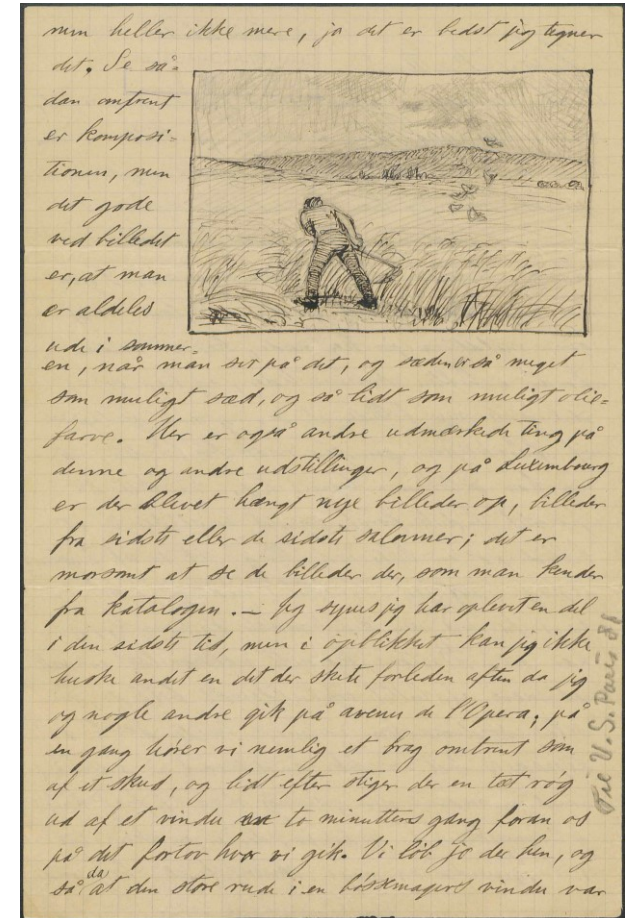 men heller ikke mere, ja det er bedst jeg tegner
det. Se så-
dan omtrent
er komposi-
tionen, men
det gode
ved billedet
er, at man
er aldeles
ude i sommer-
en, når man ser på det, og sæden er så meget
som muligt sæd, og så lidt som muligt olie-
farve. Her er også andre udmærkede ting på
denne og andre udstillinger, og på Luxembourg
er der blevet hængt nye billeder op, billeder
fra sidste eller de sidste saloner; det er
morsomt at se de billeder der, som man kender
fra katalogen. – Jeg synes jeg har oplevet en del
i den sidste tid, men i øjeblikket kan jeg ikke
huske andet en det der skete forleden aften da jeg
og nogle andre gik på avenue de l'Opera; på
en gang hører vi nemlig et brag omtrent som
af et skud, og lidt efter stiger der en tæt røg
ud af et vindue to minutters gang foran os
på det fortov hvor vi gik. Vi løb jo der hen, og
så da at den store rude i en bøssemagers vindu var
Til V. S. Paris 88